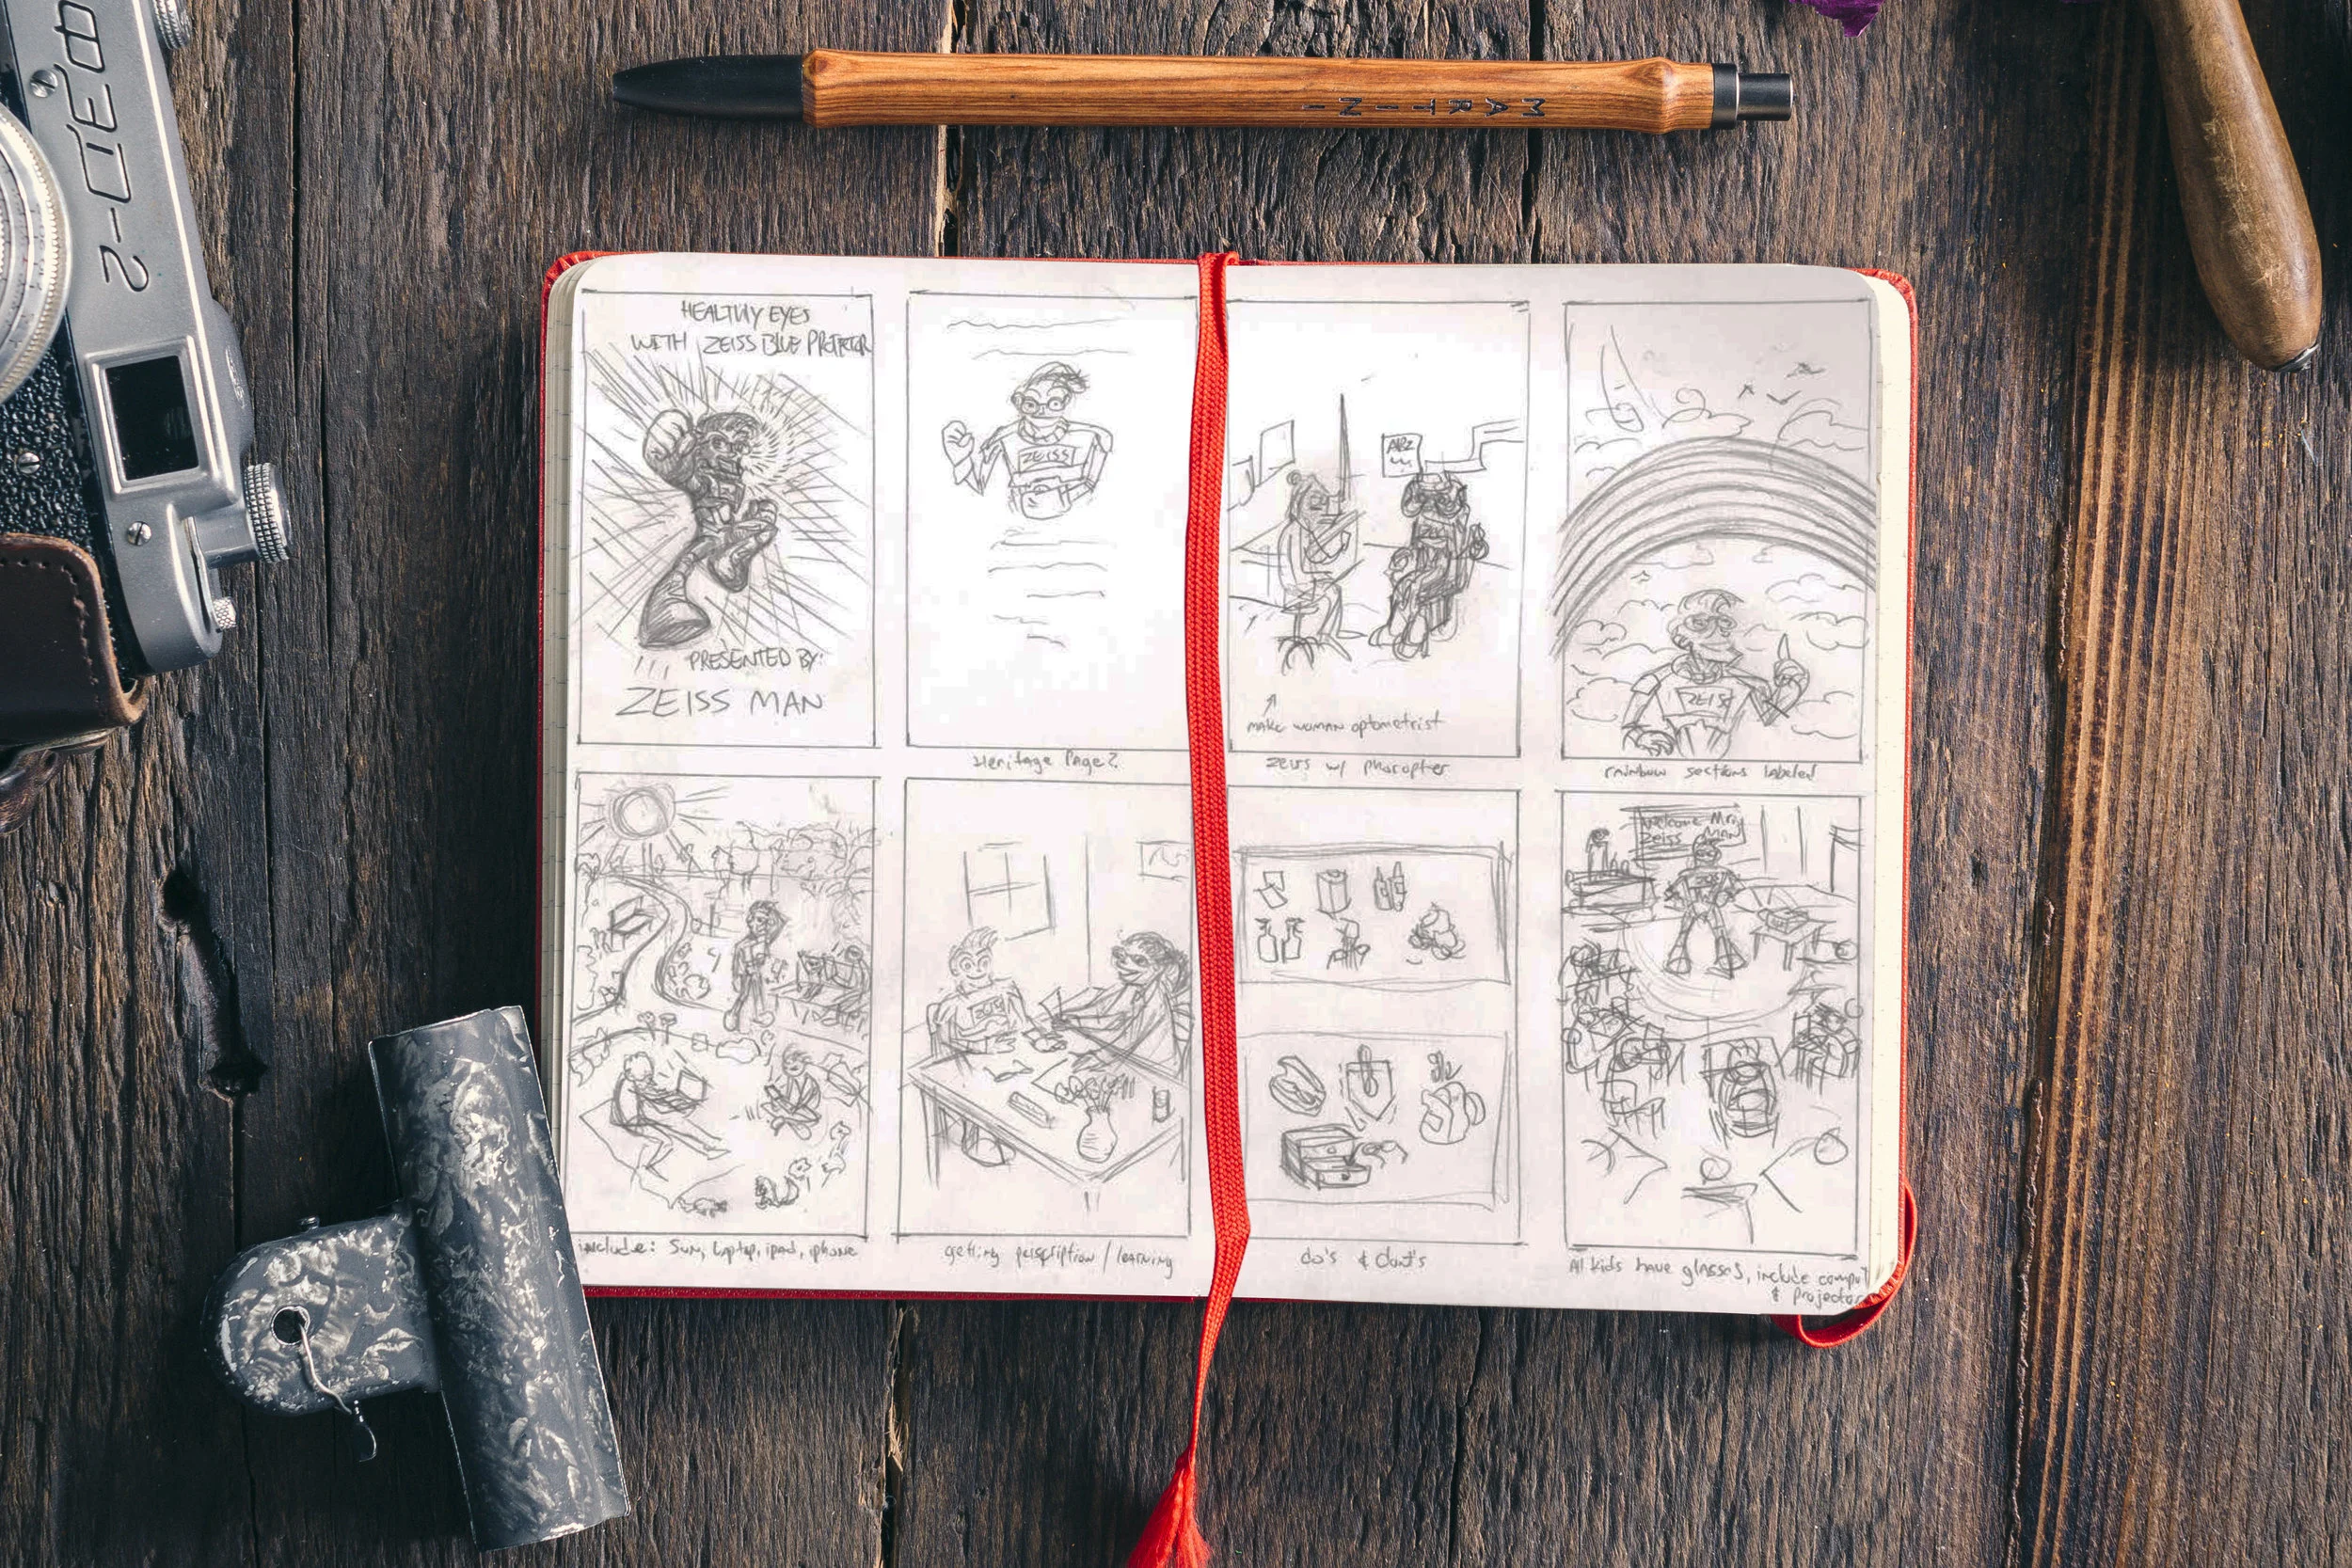 ФЭД-2
MARTINI
HEALTHY EYES
WITH ZEISS BLUE PRTETCR
PRESENTED BY:
ZEISS MAN
ZEISS
Heritage Page?
ABZ
MAKE WOMAN optometrist
ZEISS w/ phoropter
ZEISS
rainbow sections labeled
include: Sun, laptop, ipad, iphone
ZEISS
getting perscription / learning
do's & dont's
Welcome Mr.
ZEISS MAN
All kids have glasses, include comput
& projector